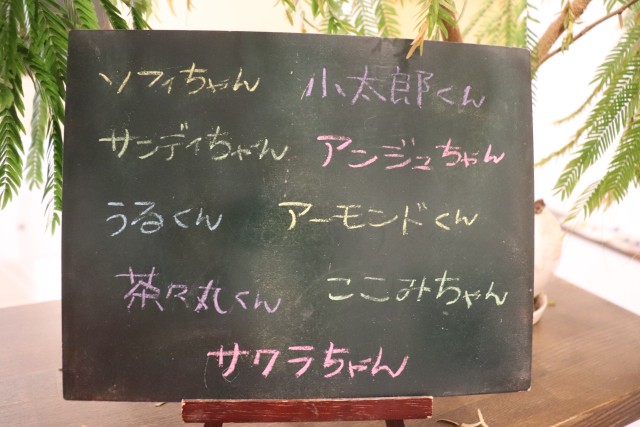 ソフィちゃん 小太郎くん
サンディちゃん アンジュちゃん
うるくん アーモンドくん
茶々丸くん ここみちゃん
サクラちゃん